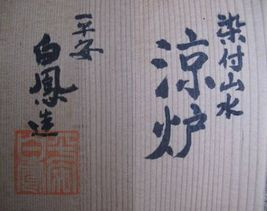 染付山水
涼炉
平安
白鳳造